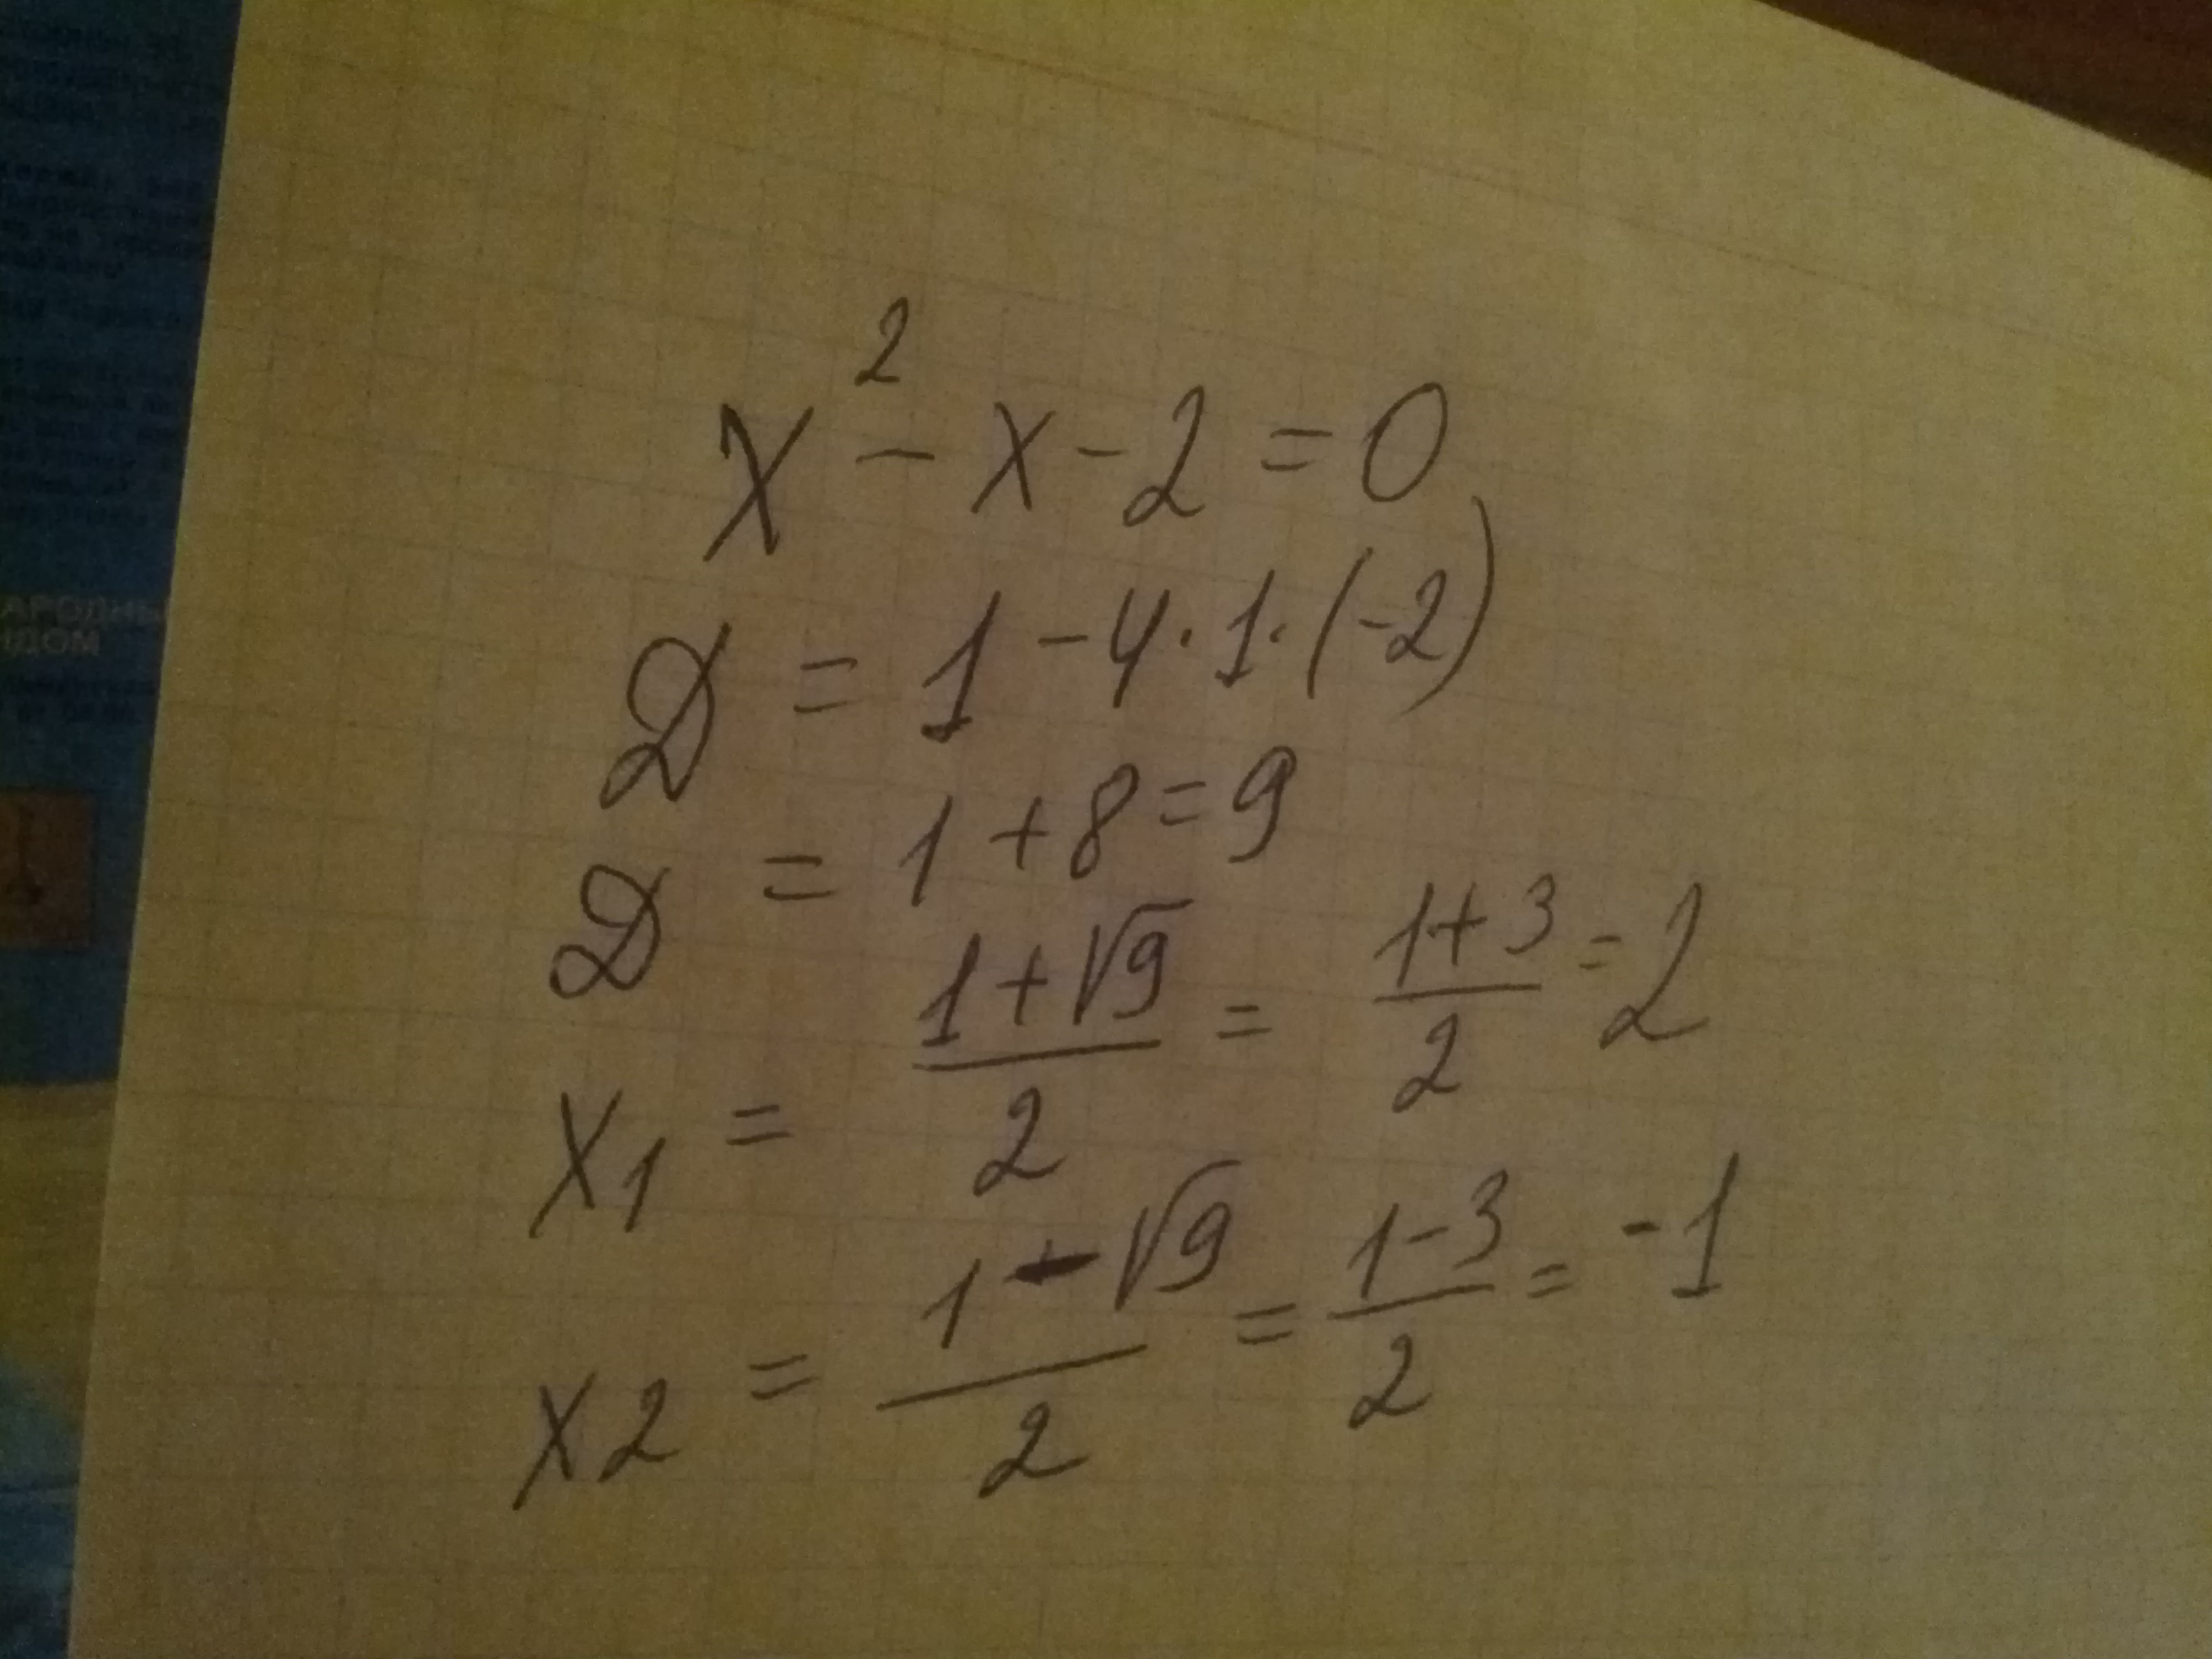 x² - x - 2 = 0
D = 1 - 4 · 1 · (-2)
D = 1 + 8 = 9
x1 = (1 + √9)/2 = (1 + 3)/2 = 2
x2 = (1 - √9)/2 = (1 - 3)/2 = -1
АРОДНЫ
НДОМ